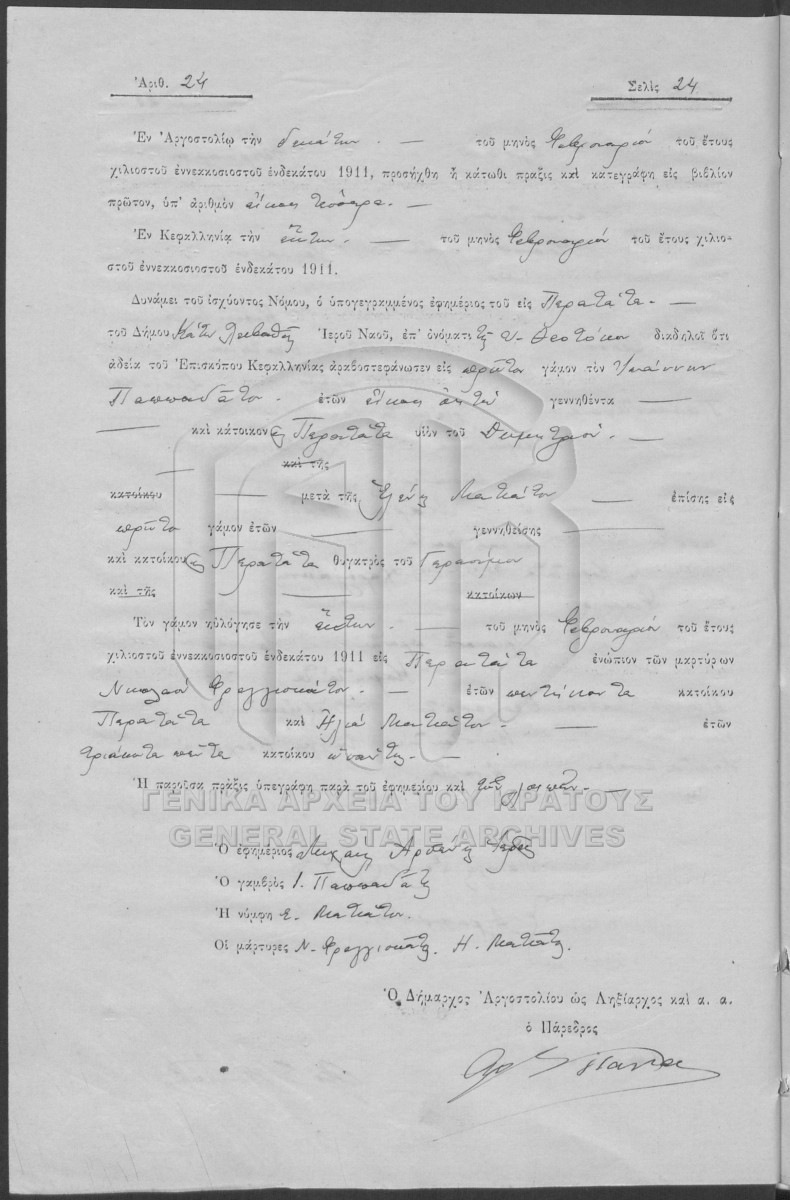 Ἀριθ. 24
Σελὶς 24
Ἐν Ἀργοστολίῳ τὴν δεκάτην. — τοῦ μηνὸς Φεβρουαρίου τοῦ ἔτους
χιλιοστοῦ ἐννεκκοσιοστοῦ ἑνδεκάτου 1911, προσήχθη ἡ κάτωθι πρᾶξις καὶ κατεγράφη εἰς βιβλίον
πρῶτον, ὑπ' ἀριθμὸν εἴκοσι τέσσαρα. —
Ἐν Κεφαλληνίᾳ τὴν ἕκτην. — τοῦ μηνὸς Φεβρουαρίου τοῦ ἔτους χιλιο-
στοῦ ἐννεκκοσιοστοῦ ἑνδεκάτου 1911.
Δυνάμει τοῦ ἰσχύοντος Νόμου, ὁ ὑπογεγραμμένος ἐφημέριος τοῦ εἰς Περατάτα. —
τοῦ Δήμου Κάτω Λειβαθοῦς Ἱεροῦ Ναοῦ, ἐπ' ὀνόματι τῆς Υ. Θεοτόκου διαδηλοῖ ὅτι
ἀδείᾳ τοῦ Ἐπισκόπου Κεφαλληνίας ἀραβοστεφάνωσεν εἰς πρῶτον γάμον τὸν Ἰωάννην
Παππαδᾶτον. ἐτῶν εἴκοσι ὀκτὼ γεννηθέντα —
— καὶ κάτοικον Περατάτα υἱὸν τοῦ Δημητρίου. —
— καὶ τῆς
κατοίκου — μετὰ τῆς Ἑλένης Ματιάτου — ἐπίσης εἰς
πρῶτο γάμον ἐτῶν — γεννηθείσης —
καὶ κατοίκου Περατάτα θυγατρὸς τοῦ Γερασίμου
καὶ τῆς — κατοίκων
Τὸν γάμον ηὐλόγησε τὴν ἕκτην. — τοῦ μηνὸς Φεβρουαρίου τοῦ ἔτους
χιλιοστοῦ ἐννεκκοσιοστοῦ ἑνδεκάτου 1911 εἰς Περατάτα ἐνώπιον τῶν μαρτύρων
Νικολάου Φραγγισκάτου. — ἐτῶν πεντήκοντα κατοίκου
Περατάτα καὶ Ἠλία Ματιάτου. — ἐτῶν
τριάκοντα πέντε κατοίκου —
Ἡ παροῦσα πρᾶξις ὑπεγράφη παρὰ τοῦ ἐφημερίου καὶ τῶν λοιπῶν. —
ΓΕΝΙΚΑ ΑΡΧΕΙΑ ΤΟΥ ΚΡΑΤΟΥΣ
GENERAL STATE ARCHIVES
Ὁ ἐφημέριος Μιχαὴλ
Ὁ γαμβρὸς Ι. Παππαδᾶτος
Ἡ νύμφη Ε. Ματιάτου.
Οἱ μάρτυρες Ν. Φραγγισκάτος. Η. Ματιάτος.
Ὁ Δήμαρχος Ἀργοστολίου ὡς Ληξίαρχος καὶ α. α.
ὁ Πάρεδρος